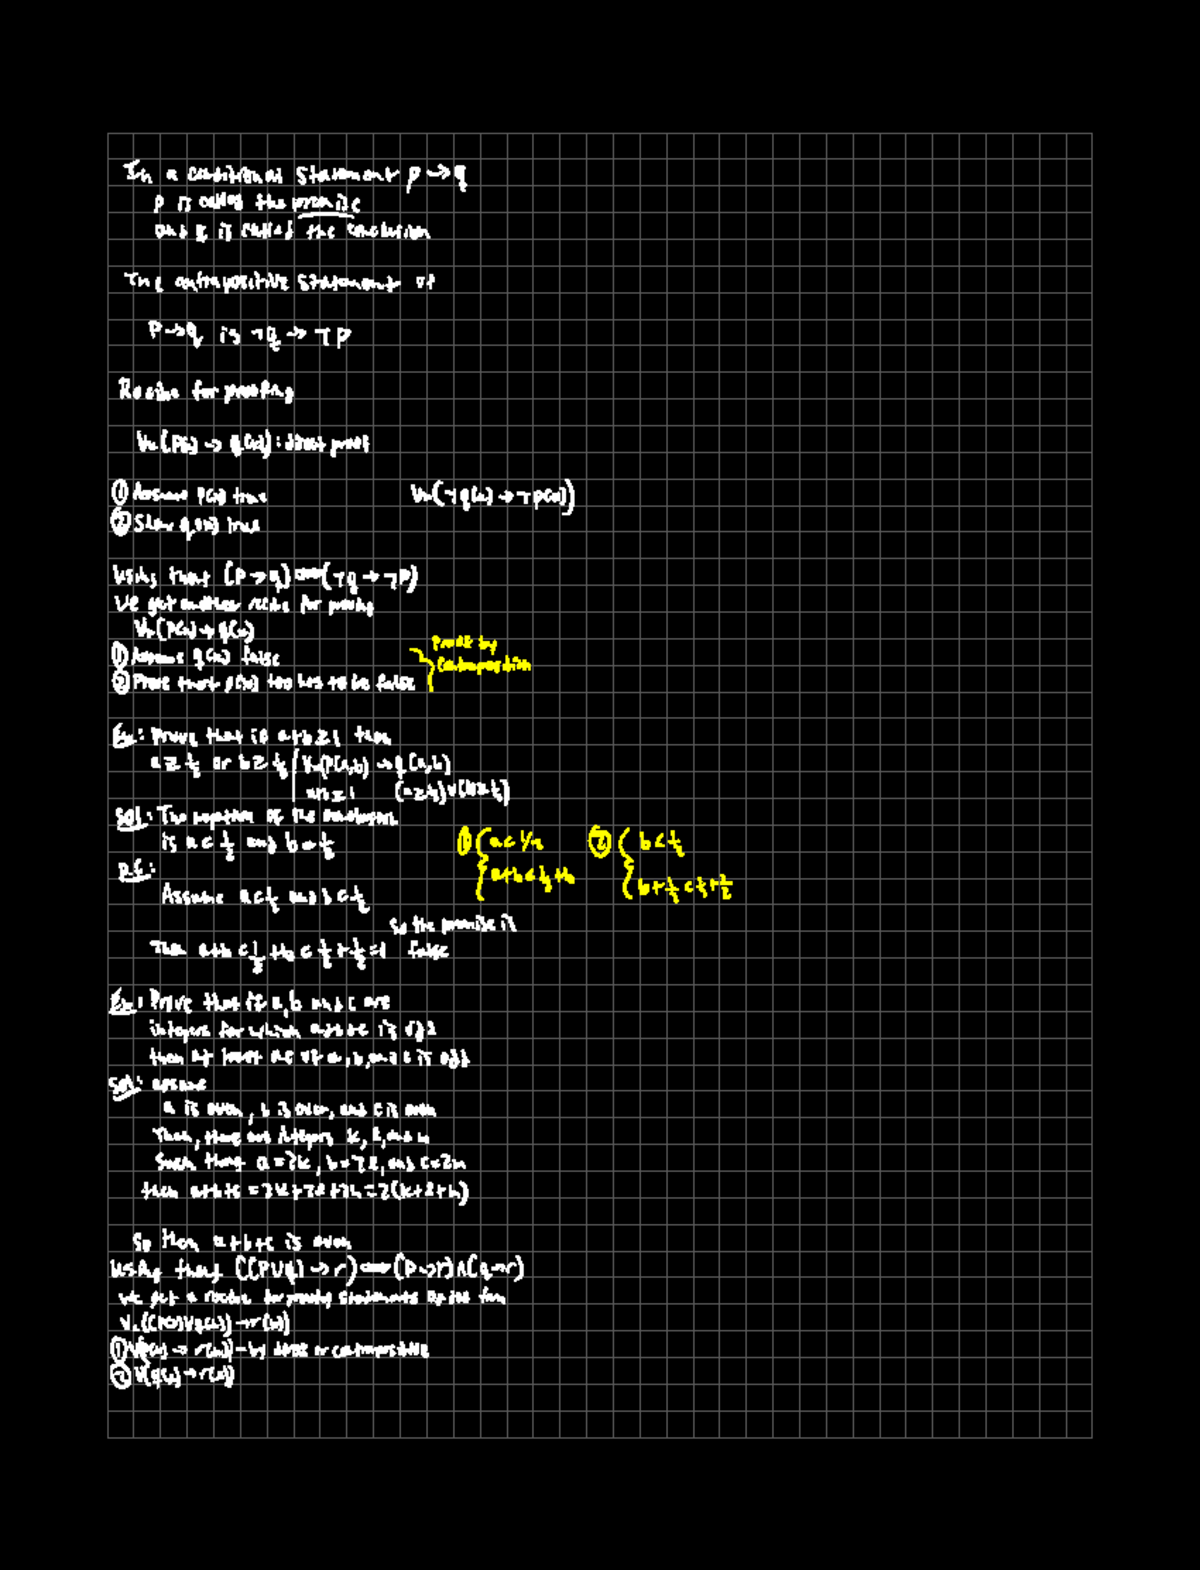 In a conditional statement p → q
p is called the premise
and q is called the conclusion
The contrapositive statement of
P → q is ¬q → ¬p
Recipe for proofing
∀x(P(x) → q(x)): direct proof
① Assume p(x) true
∀x(¬q(x) → ¬p(x))
② Show q(x) true
Using that (p → q) ⟺ (¬q → ¬p)
We get another recipe for proving
∀x(P(x) → q(x)
① Assume q(x) false
② Prove that p(x) too has to be false
Proof by
Contraposition
Ex: Prove that if a+b≥1 then
a ≥ 1/2 or b ≥ 1/2 | ∀x(P(a,b) → q(a,b)
a+b≥1 (a≥1/2)∨(b≥1/2)
Sol: The negation of the conclusion
is a < 1/2 and b < 1/2
① a < 1/2
a+b < 1/2 + b
② b < 1/2
b + 1/2 < 1/2 + 1/2
Assume a < 1/2 and b < 1/2
So the premise is
Then a+b < 1/2 + b < 1/2 + 1/2 = 1 false
Ex: Prove that if a, b and c are
integers for which a+b+c is odd
then at least one of a, b, and c is odd
Sol: assume
a is even, b is even, and c is even
Then, there are integers k, l, and n
Such that a=2k, b=2l, and c=2n
then a+b+c = 2k+2l+2n = 2(k+l+n)
So then a+b+c is even
Using that ((P∨q) → r) ⟺ (p → r)∧(q → r)
we get a recipe for proving statements of the form
∀x((P(x)∨q(x)) → r(x))
① ∀(p(x) → r(x)) - by direct or contrapositive
② ∀(q(x) → r(x))